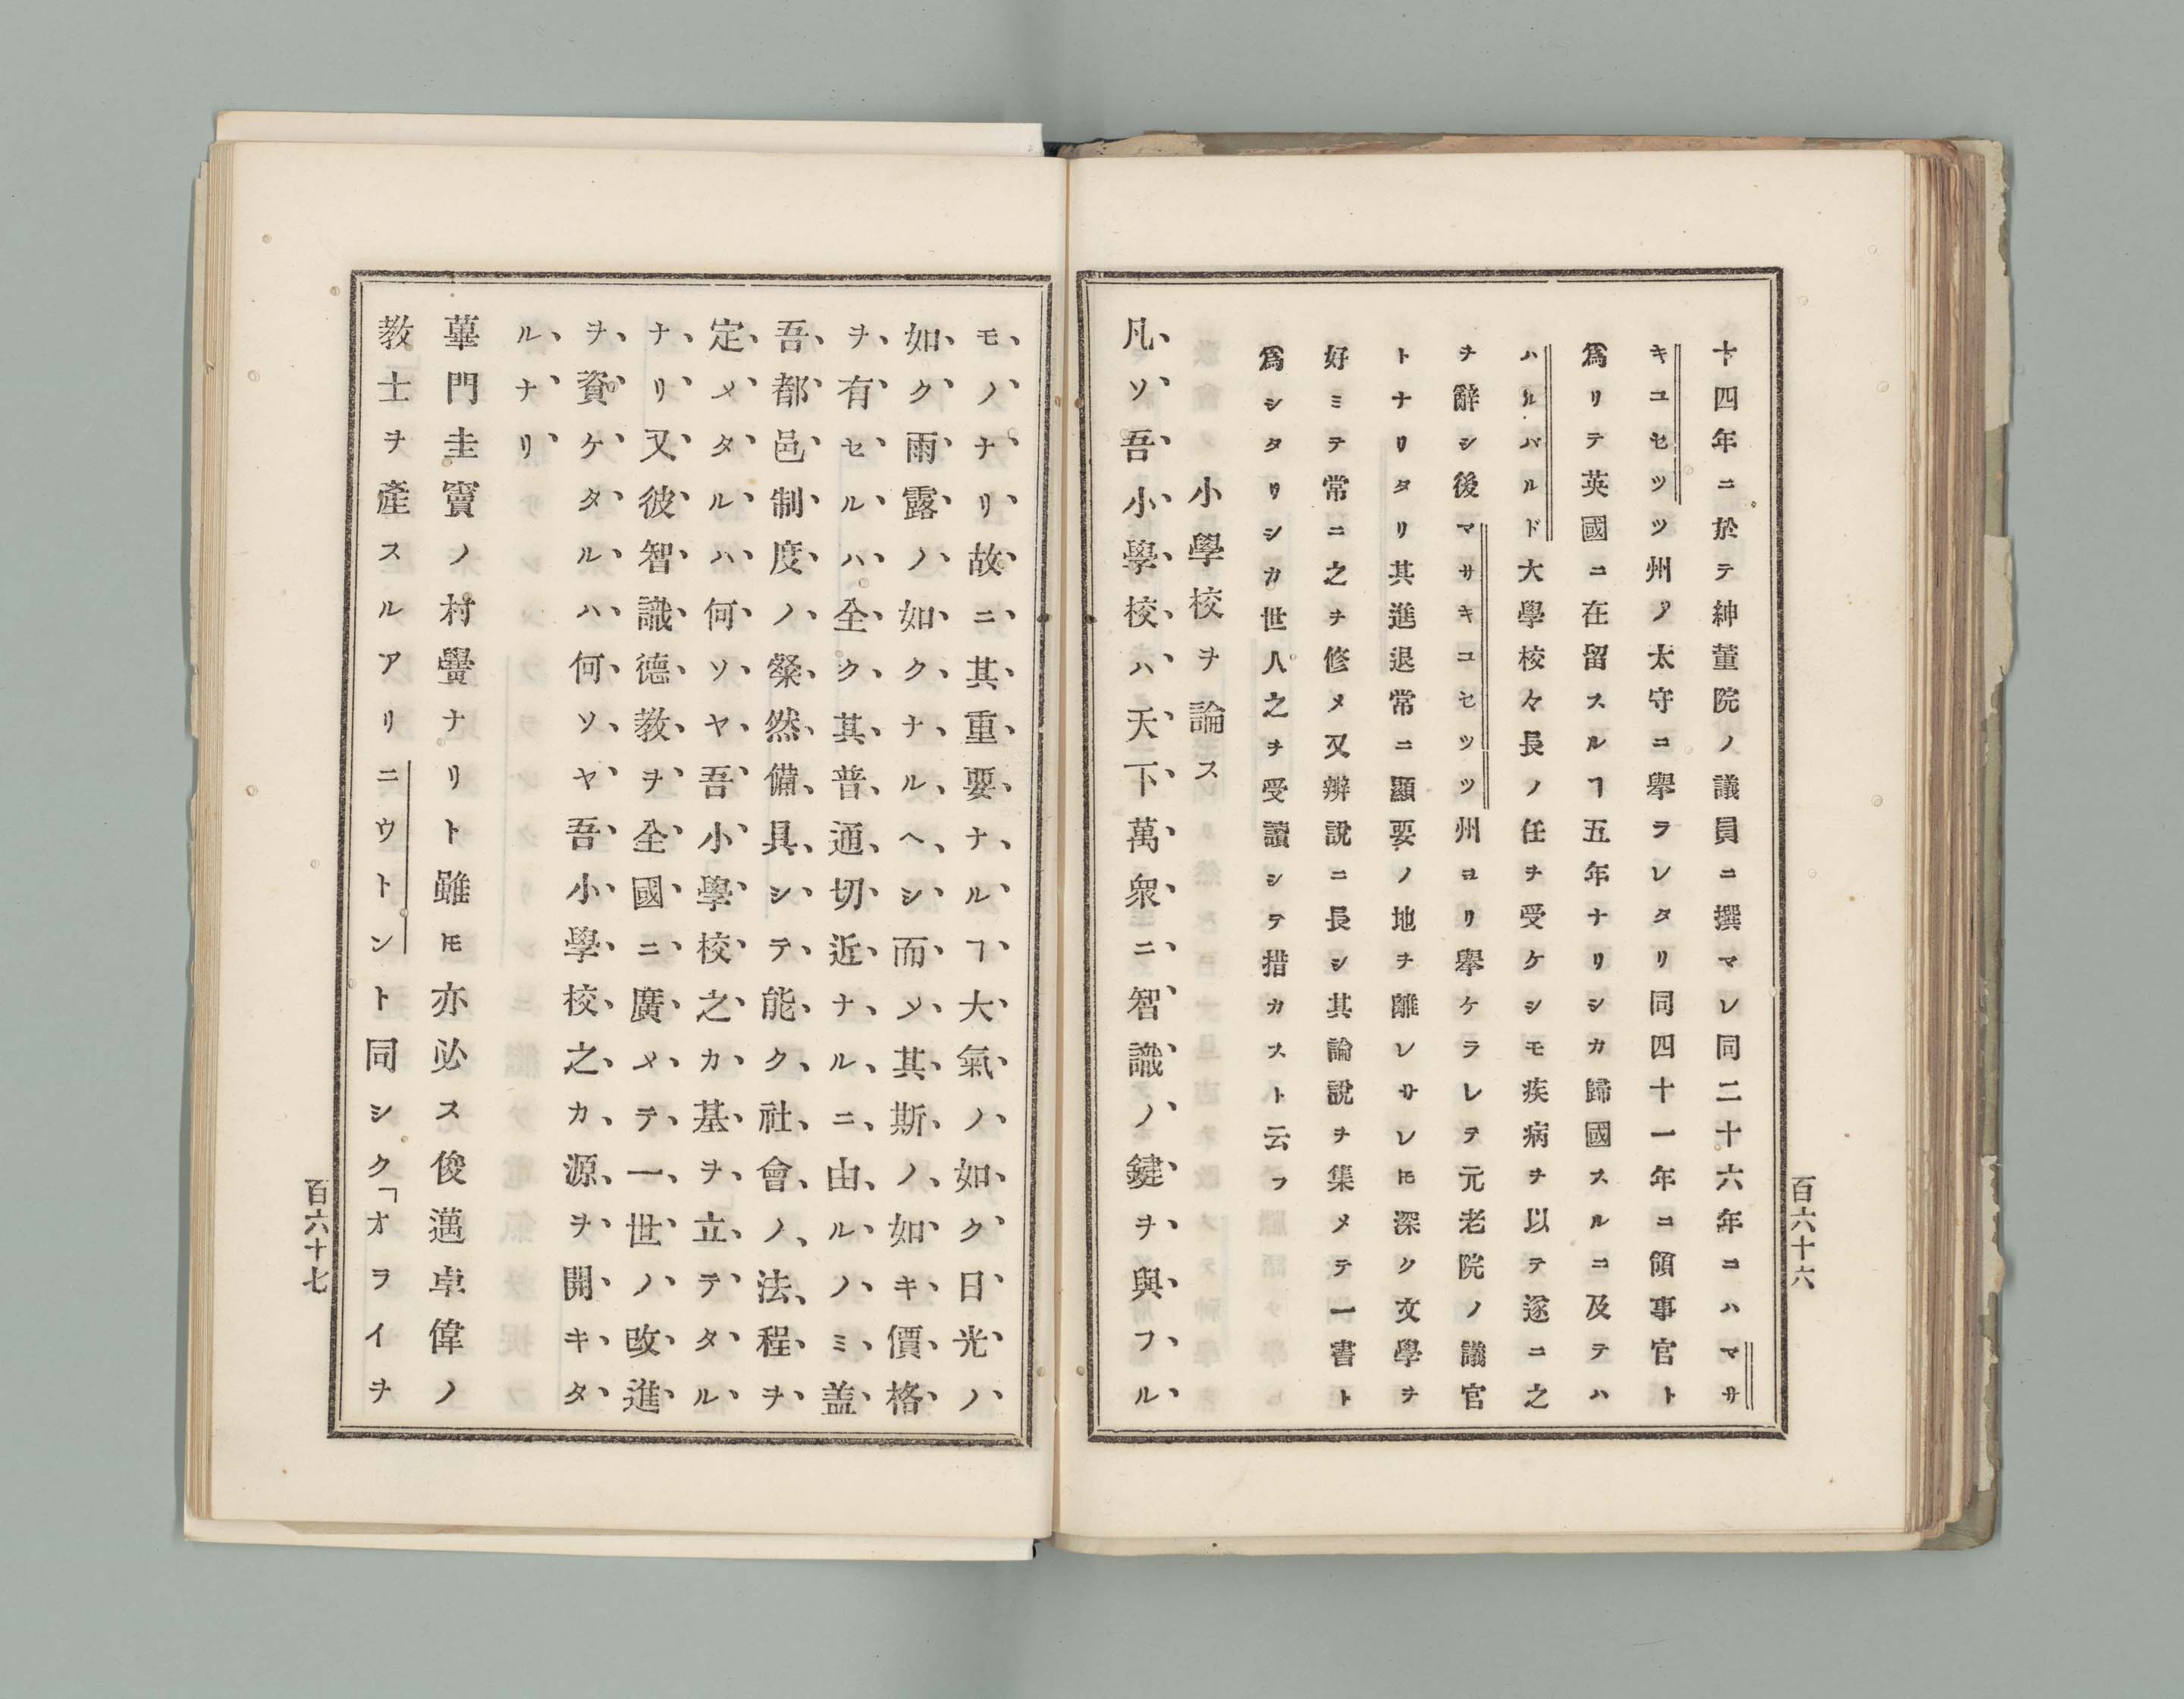 百六十六
十四年ニ於テ紳董院ノ議員ニ撰マレ同二十六年ニハマサ
キユセッツ州ノ太守ニ擧ラレタリ同四十一年ニ領事官ト
爲リテ英國ニ在留スルヿ五年ナリシカ歸國スルニ及テハ
ハルバルド大學校々長ノ任ヲ受ケシモ疾病ヲ以テ遂ニ之
ヲ辭シ後マサキユセッツ州ヨリ擧ケラレテ元老院ノ議官
トナリタリ其進退常ニ顯要ノ地ヲ離レサレ𪜈深ク文學ヲ
好ミテ常ニ之ヲ修メ又辨説ニ長シ其論説ヲ集メテ一書ト
爲シタリシカ世人之ヲ受讀シテ措カスト云フ
小學校ヲ論ス
凡ソ吾小學校ハ天下萬衆ニ智識ノ鍵ヲ與フル
モノナリ故ニ其重要ナルヿ大氣ノ如ク日光ノ
如ク雨露ノ如クナルヘシ而〆其斯ノ如キ價格
ヲ有セルハ全ク其普通切近ナルニ由ルノミ盖
吾都邑制度ノ粲然備具シテ能ク社會ノ法程ヲ
定メタルハ何ソヤ吾小學校之カ基ヲ立テタル
ナリ又彼智識德教ヲ全國ニ廣メテ一世ノ改進
ヲ資ケタルハ何ソヤ吾小學校之カ源ヲ開キタ
ルナリ
蓽門圭竇ノ村黌ナリト雖𪜈亦必ス俊邁卓偉ノ
教士ヲ產スルアリニウトント同シク「オライヲ
百六十七